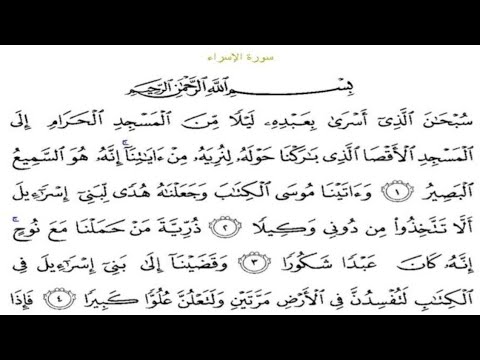 سورة الإسراء
بِسْمِ اللَّهِ الرَّحْمَٰنِ الرَّحِيمِ
سُبْحَٰنَ الَّذِىٓ أَسْرَىٰ بِعَبْدِهِۦ لَيْلًا مِّنَ الْمَسْجِدِ الْحَرَامِ إِلَى
الْمَسْجِدِ الْأَقْصَا الَّذِى بَٰرَكْنَا حَوْلَهُۥ لِنُرِيَهُۥ مِنْ ءَايَٰتِنَآ ۚ إِنَّهُۥ هُوَ السَّمِيعُ
الْبَصِيرُ ﴿١﴾ وَءَاتَيْنَا مُوسَى الْكِتَٰبَ وَجَعَلْنَٰهُ هُدًى لِّبَنِىٓ إِسْرَٰٓءِيلَ
أَلَّا تَتَّخِذُوا۟ مِن دُونِى وَكِيلًا ﴿٢﴾ ذُرِّيَّةَ مَنْ حَمَلْنَا مَعَ نُوحٍ ۚ
إِنَّهُۥ كَانَ عَبْدًا شَكُورًا ﴿٣﴾ وَقَضَيْنَآ إِلَىٰ بَنِىٓ إِسْرَٰٓءِيلَ فِى
الْكِتَٰبِ لَتُفْسِدُنَّ فِى الْأَرْضِ مَرَّتَيْنِ وَلَتَعْلُنَّ عُلُوًّا كَبِيرًا ﴿٤﴾ فَإِذَا